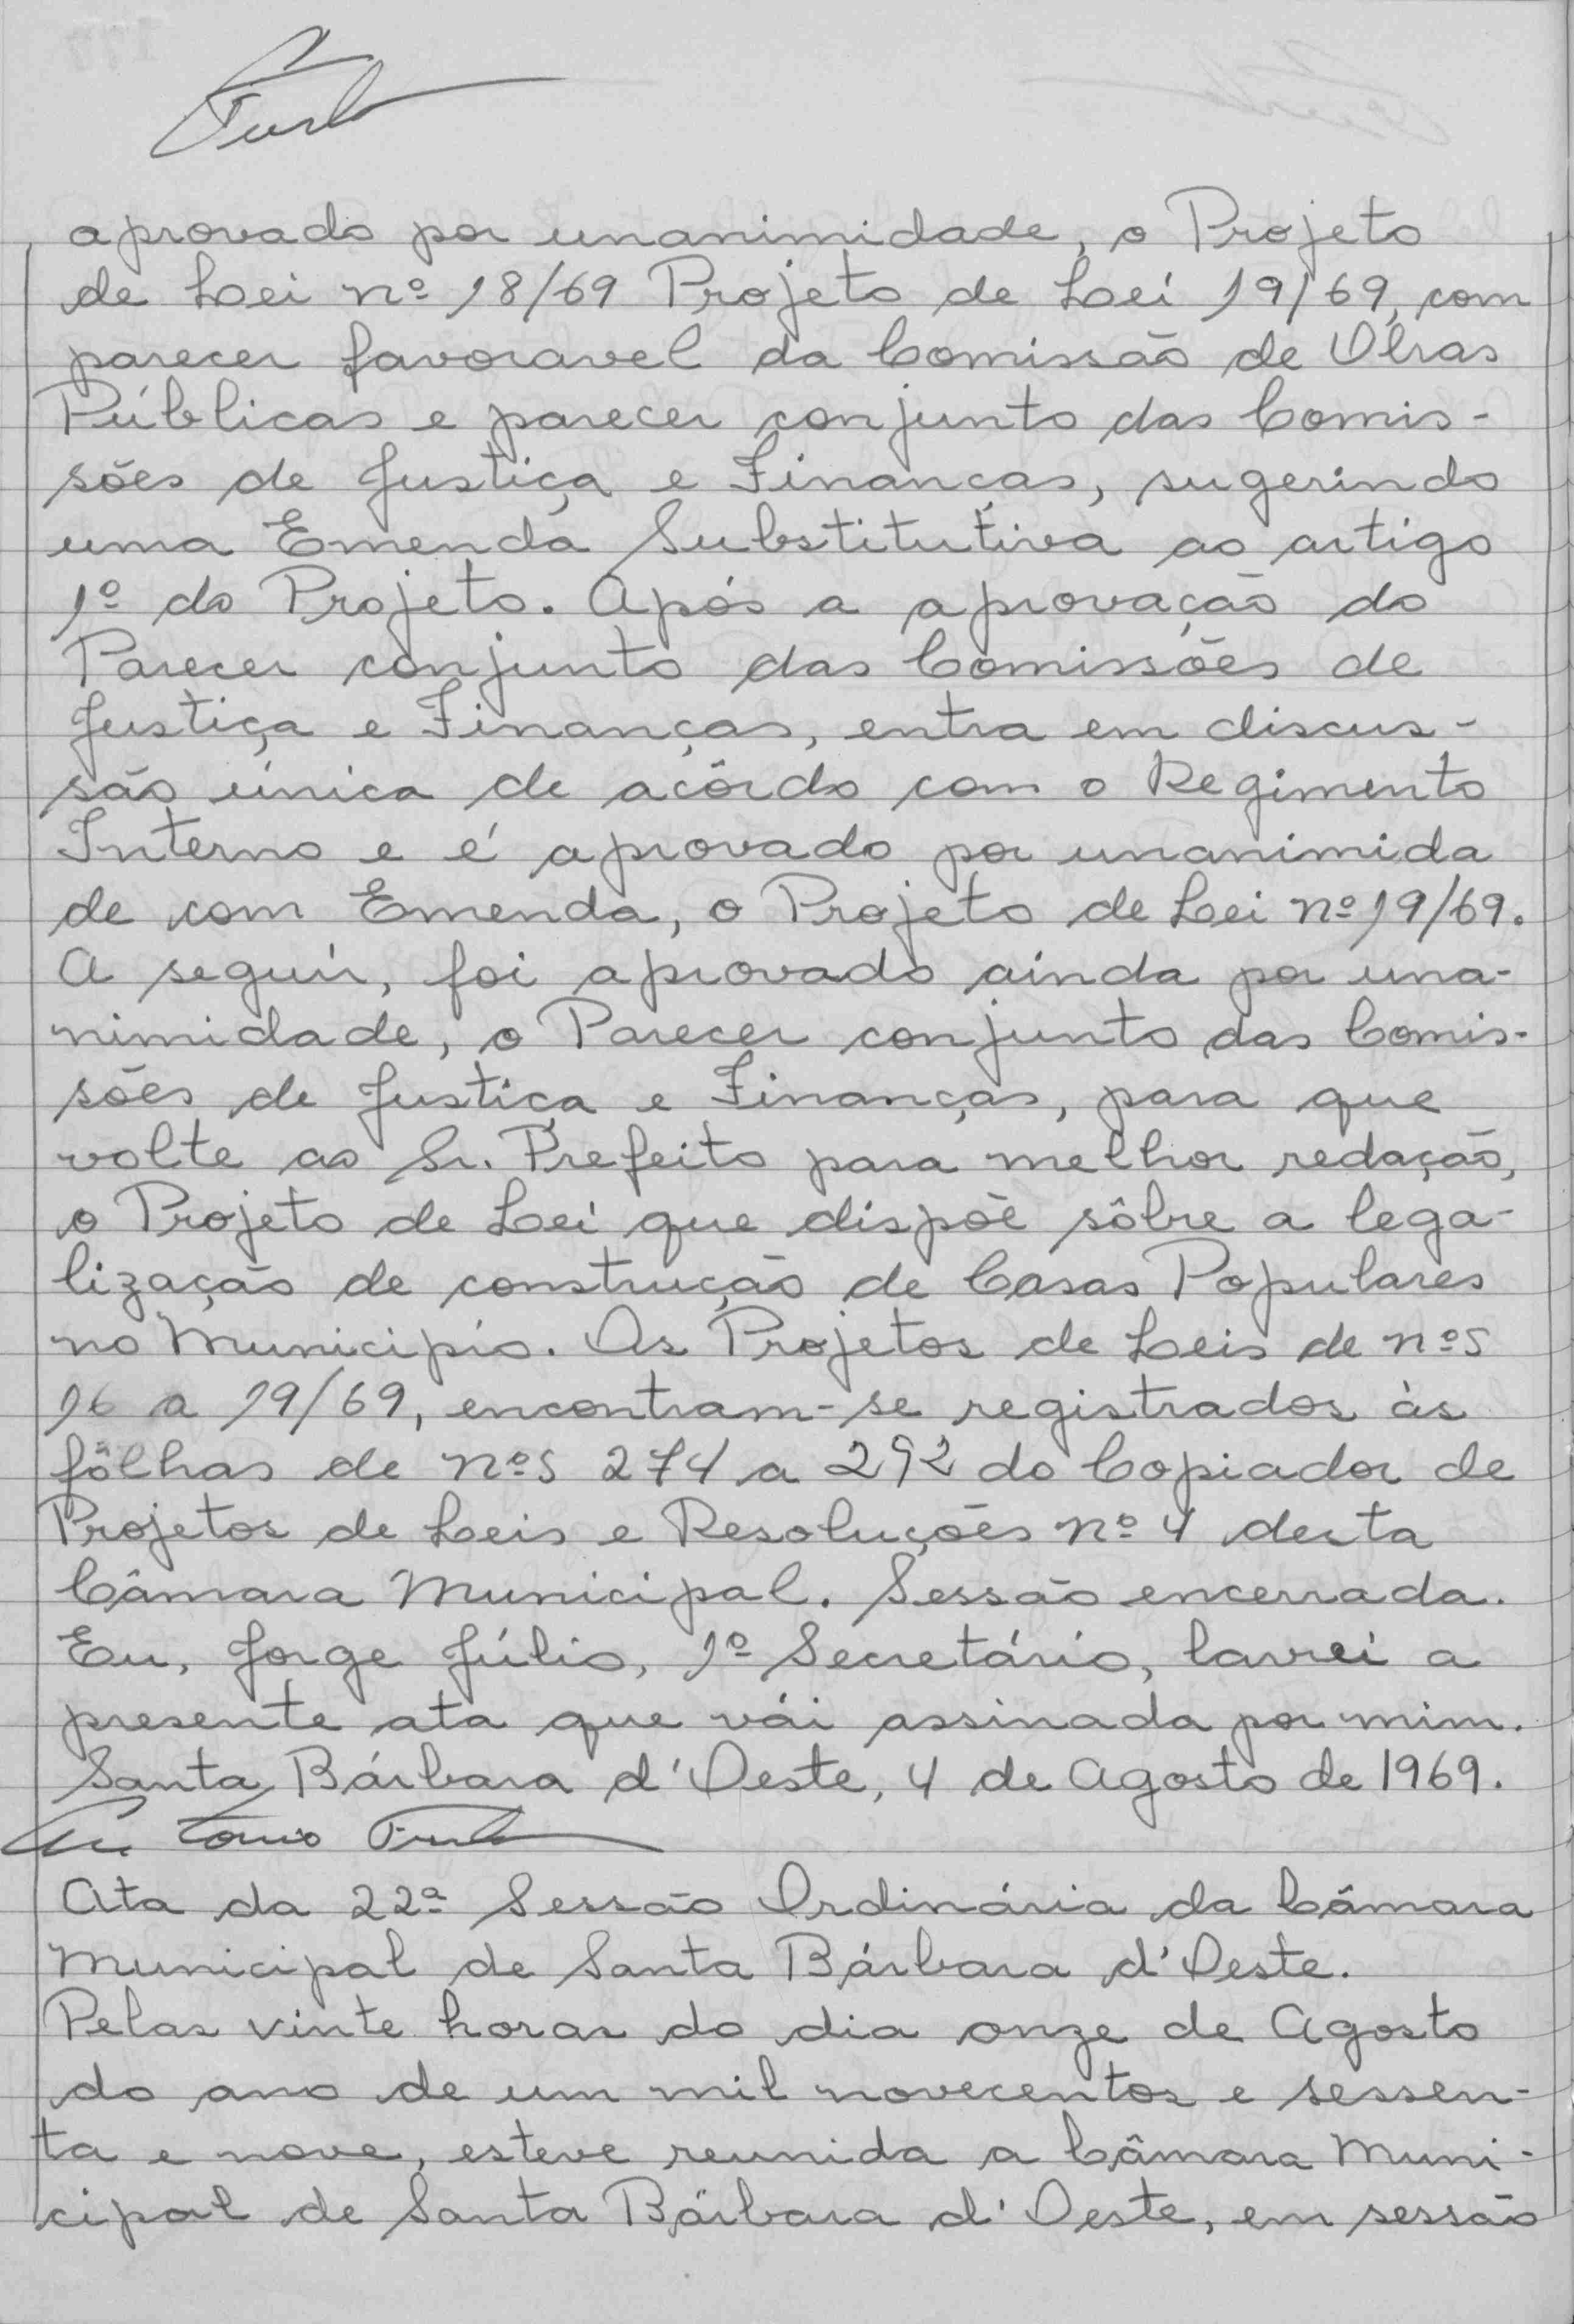 aprovado por unanimidade, o Projeto
de Lei nº 18/69 Projeto de Lei 19/69, com
parecer favoravel da Comissão de Obras
Públicas e parecer conjunto das Comis-
sões de Justiça e Finanças, sugerindo
uma Emenda Substitutiva ao artigo
1º do Projeto. Após a aprovação do
Parecer conjunto das Comissões de
Justiça e Finanças, entra em discus-
são única de acôrdo com o Regimento
Interno e é aprovado por unanimida
de com Emenda, o Projeto de Lei nº 19/69.
A seguir, foi aprovado ainda por una-
nimidade, o Parecer conjunto das Comis-
sões de Justiça e Finanças, para que
volte ao Sr. Prefeito para melhor redação,
o Projeto de Lei que dispõe sôbre a lega-
lização de construção de Casas Populares
no Municipio. Os Projetos de Leis de nºs
16 a 19/69, encontram-se registrados às
fôlhas de nºs 274 a 292 do Copiador de
Projetos de Leis e Resoluções nº 4 desta
Câmara Municipal. Sessão encerrada.
Eu, Jorge Júlio, 1º Secretário, lavrei a
presente ata que vái assinada por mim.
Santa Bárbara d'Oeste, 4 de Agosto de 1969.
Ata da 22ª Sessão Ordinária da Câmara
Municipal de Santa Bárbara d'Oeste.
Pelas vinte horas do dia onze de Agosto
do ano de um mil novecentos e sessen-
ta e nove, esteve reunida a Câmara Muni-
cipal de Santa Bárbara d'Oeste, em sessão